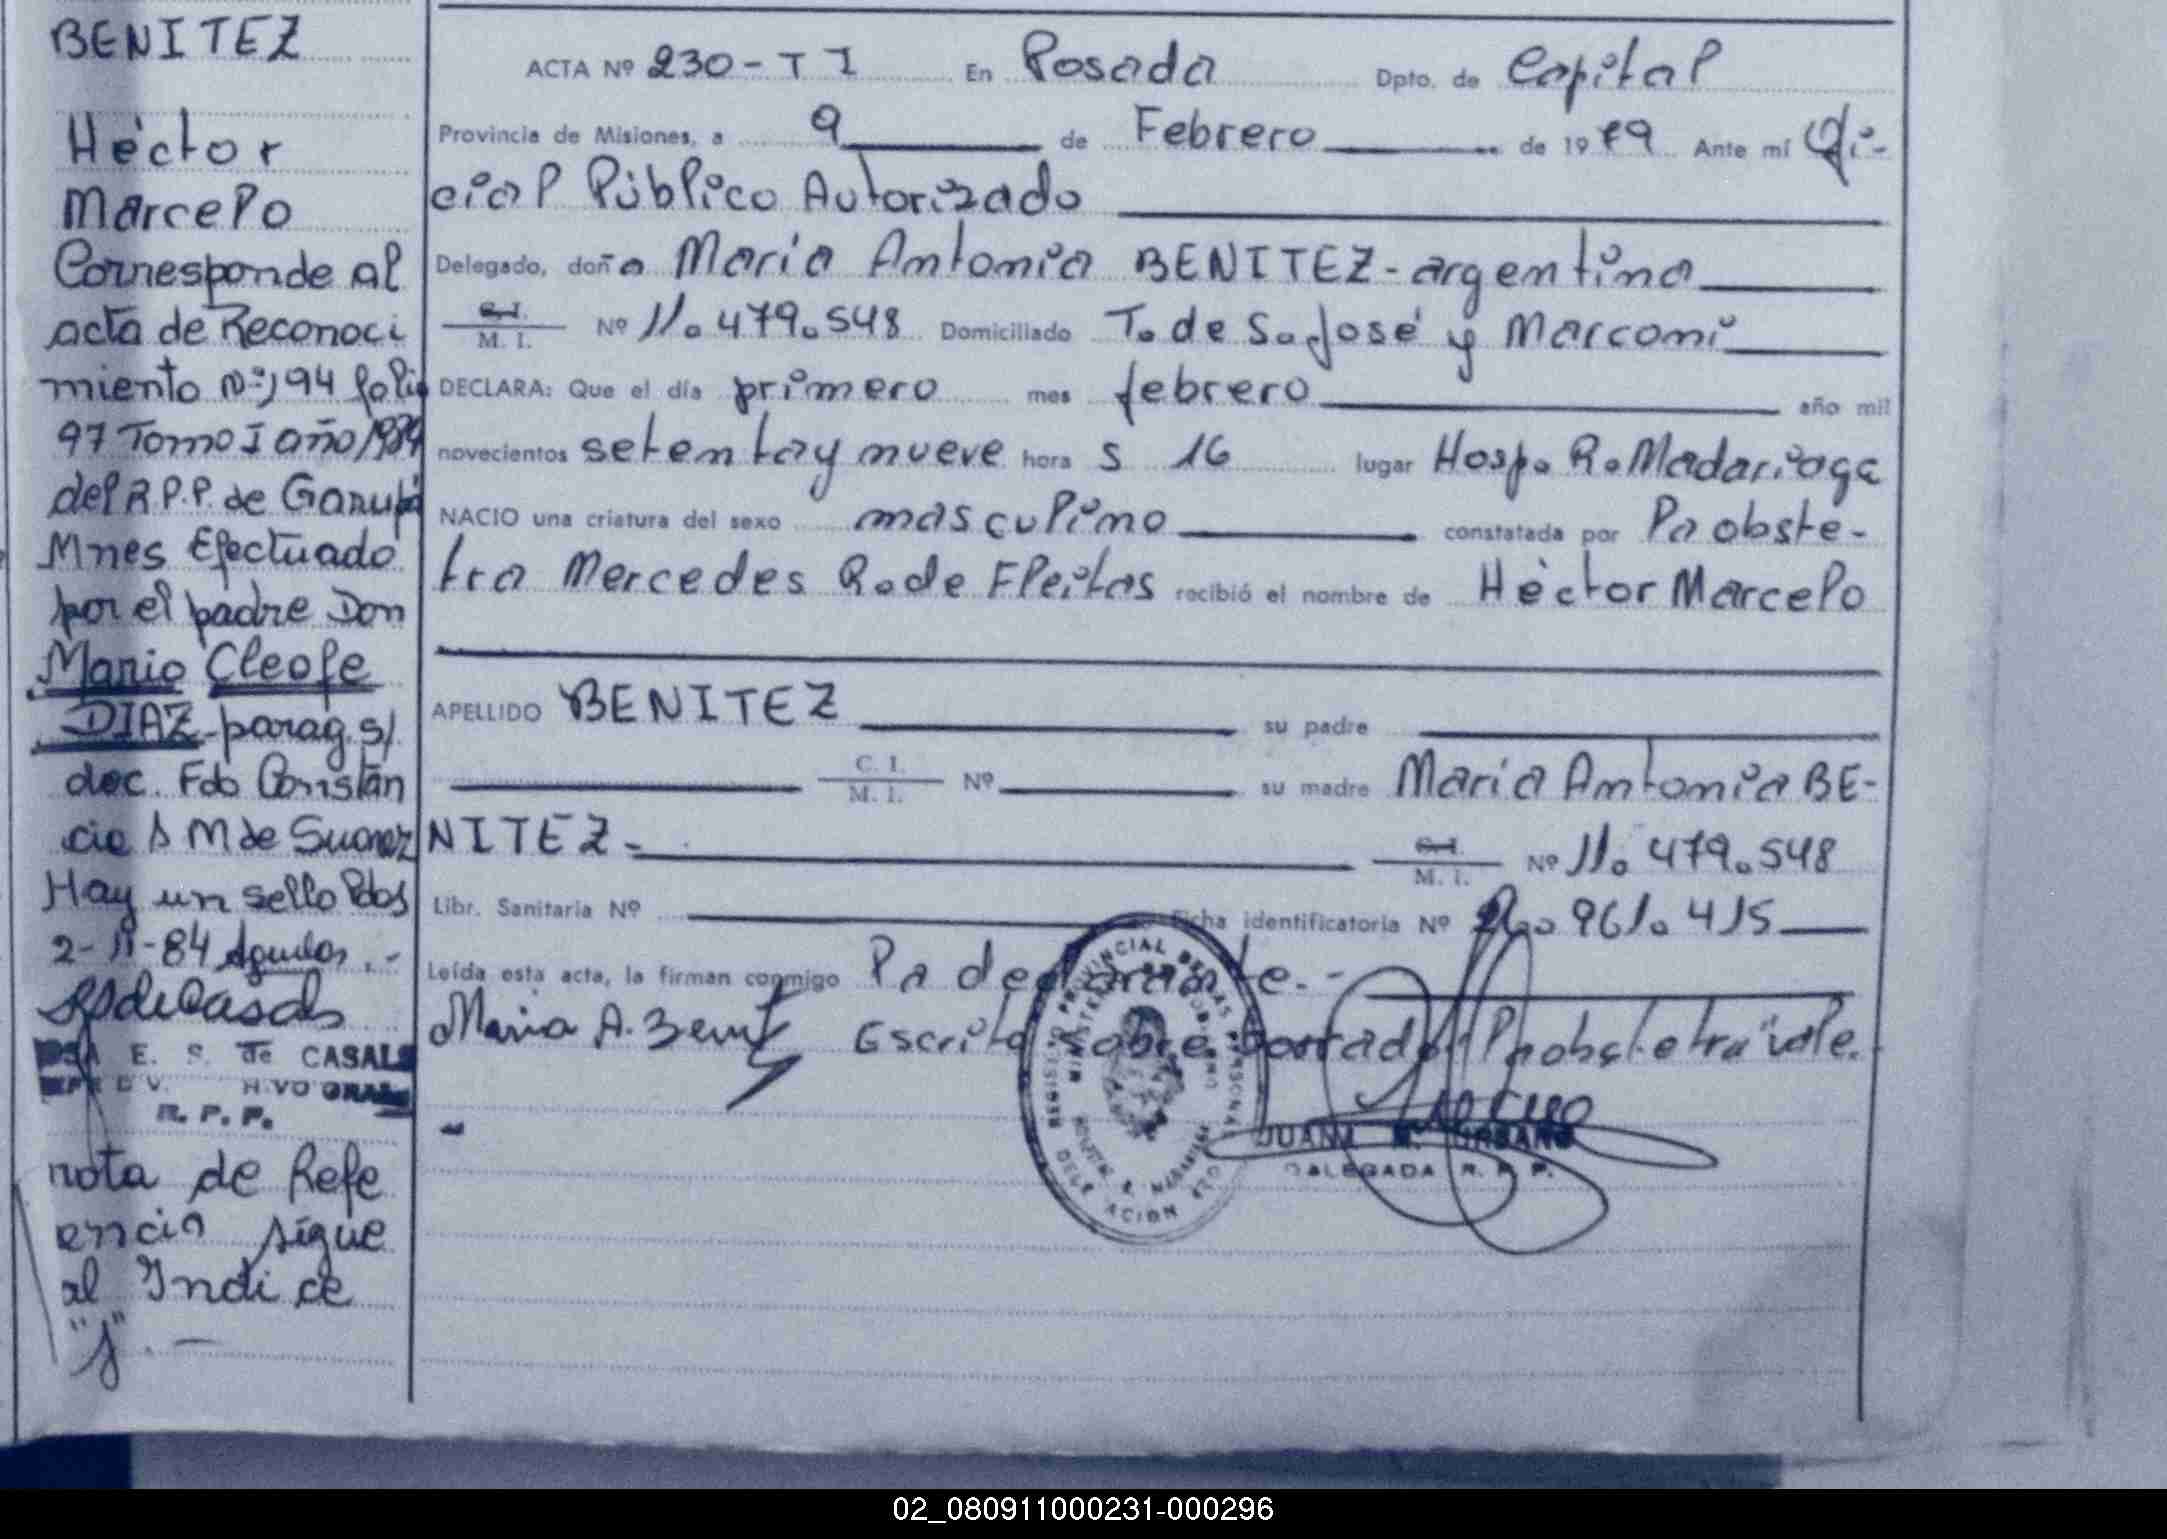 BENITEZ
Héctor
Marcelo
Corresponde al
acta de Reconoci
miento Nº 194 folio
97 Tomo I año 1984
del R.P.P. de Garupá
Mnes Efectuado
por el padre Don
Mario Cleofe
DIAZ parag. s/
doc. Fdo Constan
cia S M de Suarez
Hay un sello Pdos
2-11-84
E. S. de CASALS
R. P. P.
nota de Refe
encia sigue
al Indice
"J".-
ACTA Nº 230-T I En Posada Dpto. de Capital
Provincia de Misiones, a 9 de Febrero de 1979 Ante mí Ofi-
cial Público Autorizado
Delegado, doña María Antonia BENITEZ-argentina
C.I. M. I. Nº 11.479.548 Domiciliado T. de S. José y Marconi
DECLARA: Que el día primero mes febrero año mil
novecientos setenta y nueve hora s 16 lugar Hosp. R. Madariaga
NACIO una criatura del sexo masculino constatada por la obste-
tra Mercedes R. de Fleitas recibió el nombre de Héctor Marcelo
APELLIDO BENITEZ su padre
C. I. M. I. Nº su madre María Antonia BE-
NITEZ- C.I. M. I. Nº 11.479.548
Libr. Sanitaria Nº Ficha identificatoria Nº 961.415
Leída esta acta, la firman conmigo la declarante.-
Maria A. Benitez Escrito sobre borrado: "la obstetra" vale.
-
REGISTRO PROVINCIAL DE LAS PERSONAS
DELEGACION
JUANA
DALEGADA R. P. P.
02_080911000231-000296